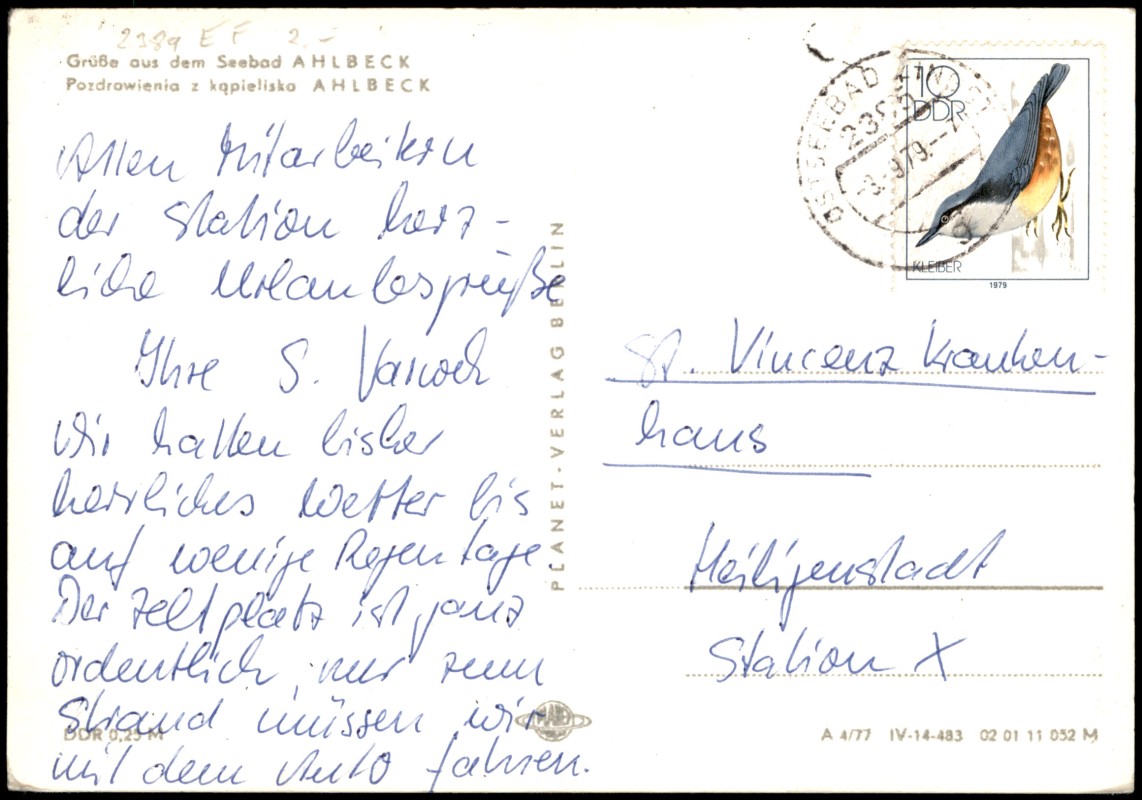 2389 EF 2.-
Grüße aus dem Seebad AHLBECK
Pozdrowienia z kąpieliska AHLBECK
Allen Mitarbeitern
der Station herz-
liche Urlaubsgrüße
Ihre S.
Wir hatten bisher
herrliches Wetter bis
auf wenige Regentage
Der Zeltplatz ist ganz
ordentlich, nur zum
Strand müssen wir
mit dem Auto fahren.
DDR 0,25 M
PLANET-VERLAG BERLIN
OSTSEEBAD
-3.-9.79.-
10
DDR
KLEIBER
1979
St. Vincenz Kranken-
haus
Heiligenstadt
Station X
A 4/77 IV-14-483 02 01 11 052 M